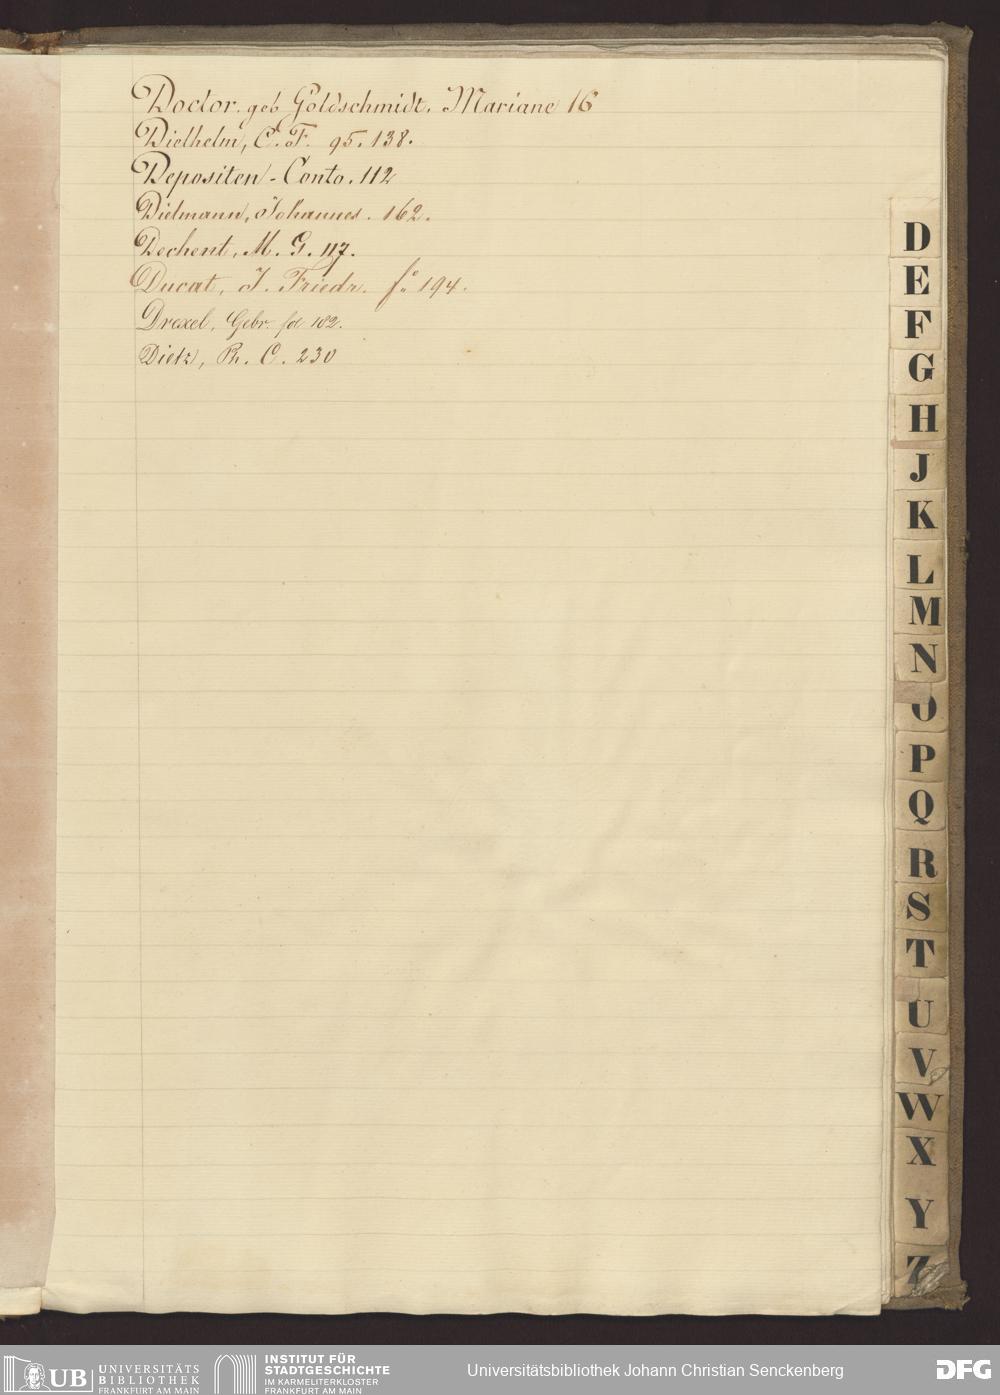 Doctor. geb Goldschmidt. Mariane 16
Dielhelm, C. F. 95. 138.
Depositen-Conto. 112
Dielmann, Johannes. 162.
Dechent, M. G. 117.
Ducat, J. Friedr. fo 194.
Drexel, Gebr. fol 182.
Dietz, Ph. C. 230
D
E
F
G
H
J
K
L
M
N
O
P
Q
R
S
T
U
V
W
X
Y
Z
UB UNIVERSITÄTS
BIBLIOTHEK
FRANKFURT AM MAIN
INSTITUT FÜR
STADTGESCHICHTE
IM KARMELITERKLOSTER
FRANKFURT AM MAIN
Universitätsbibliothek Johann Christian Senckenberg
DFG